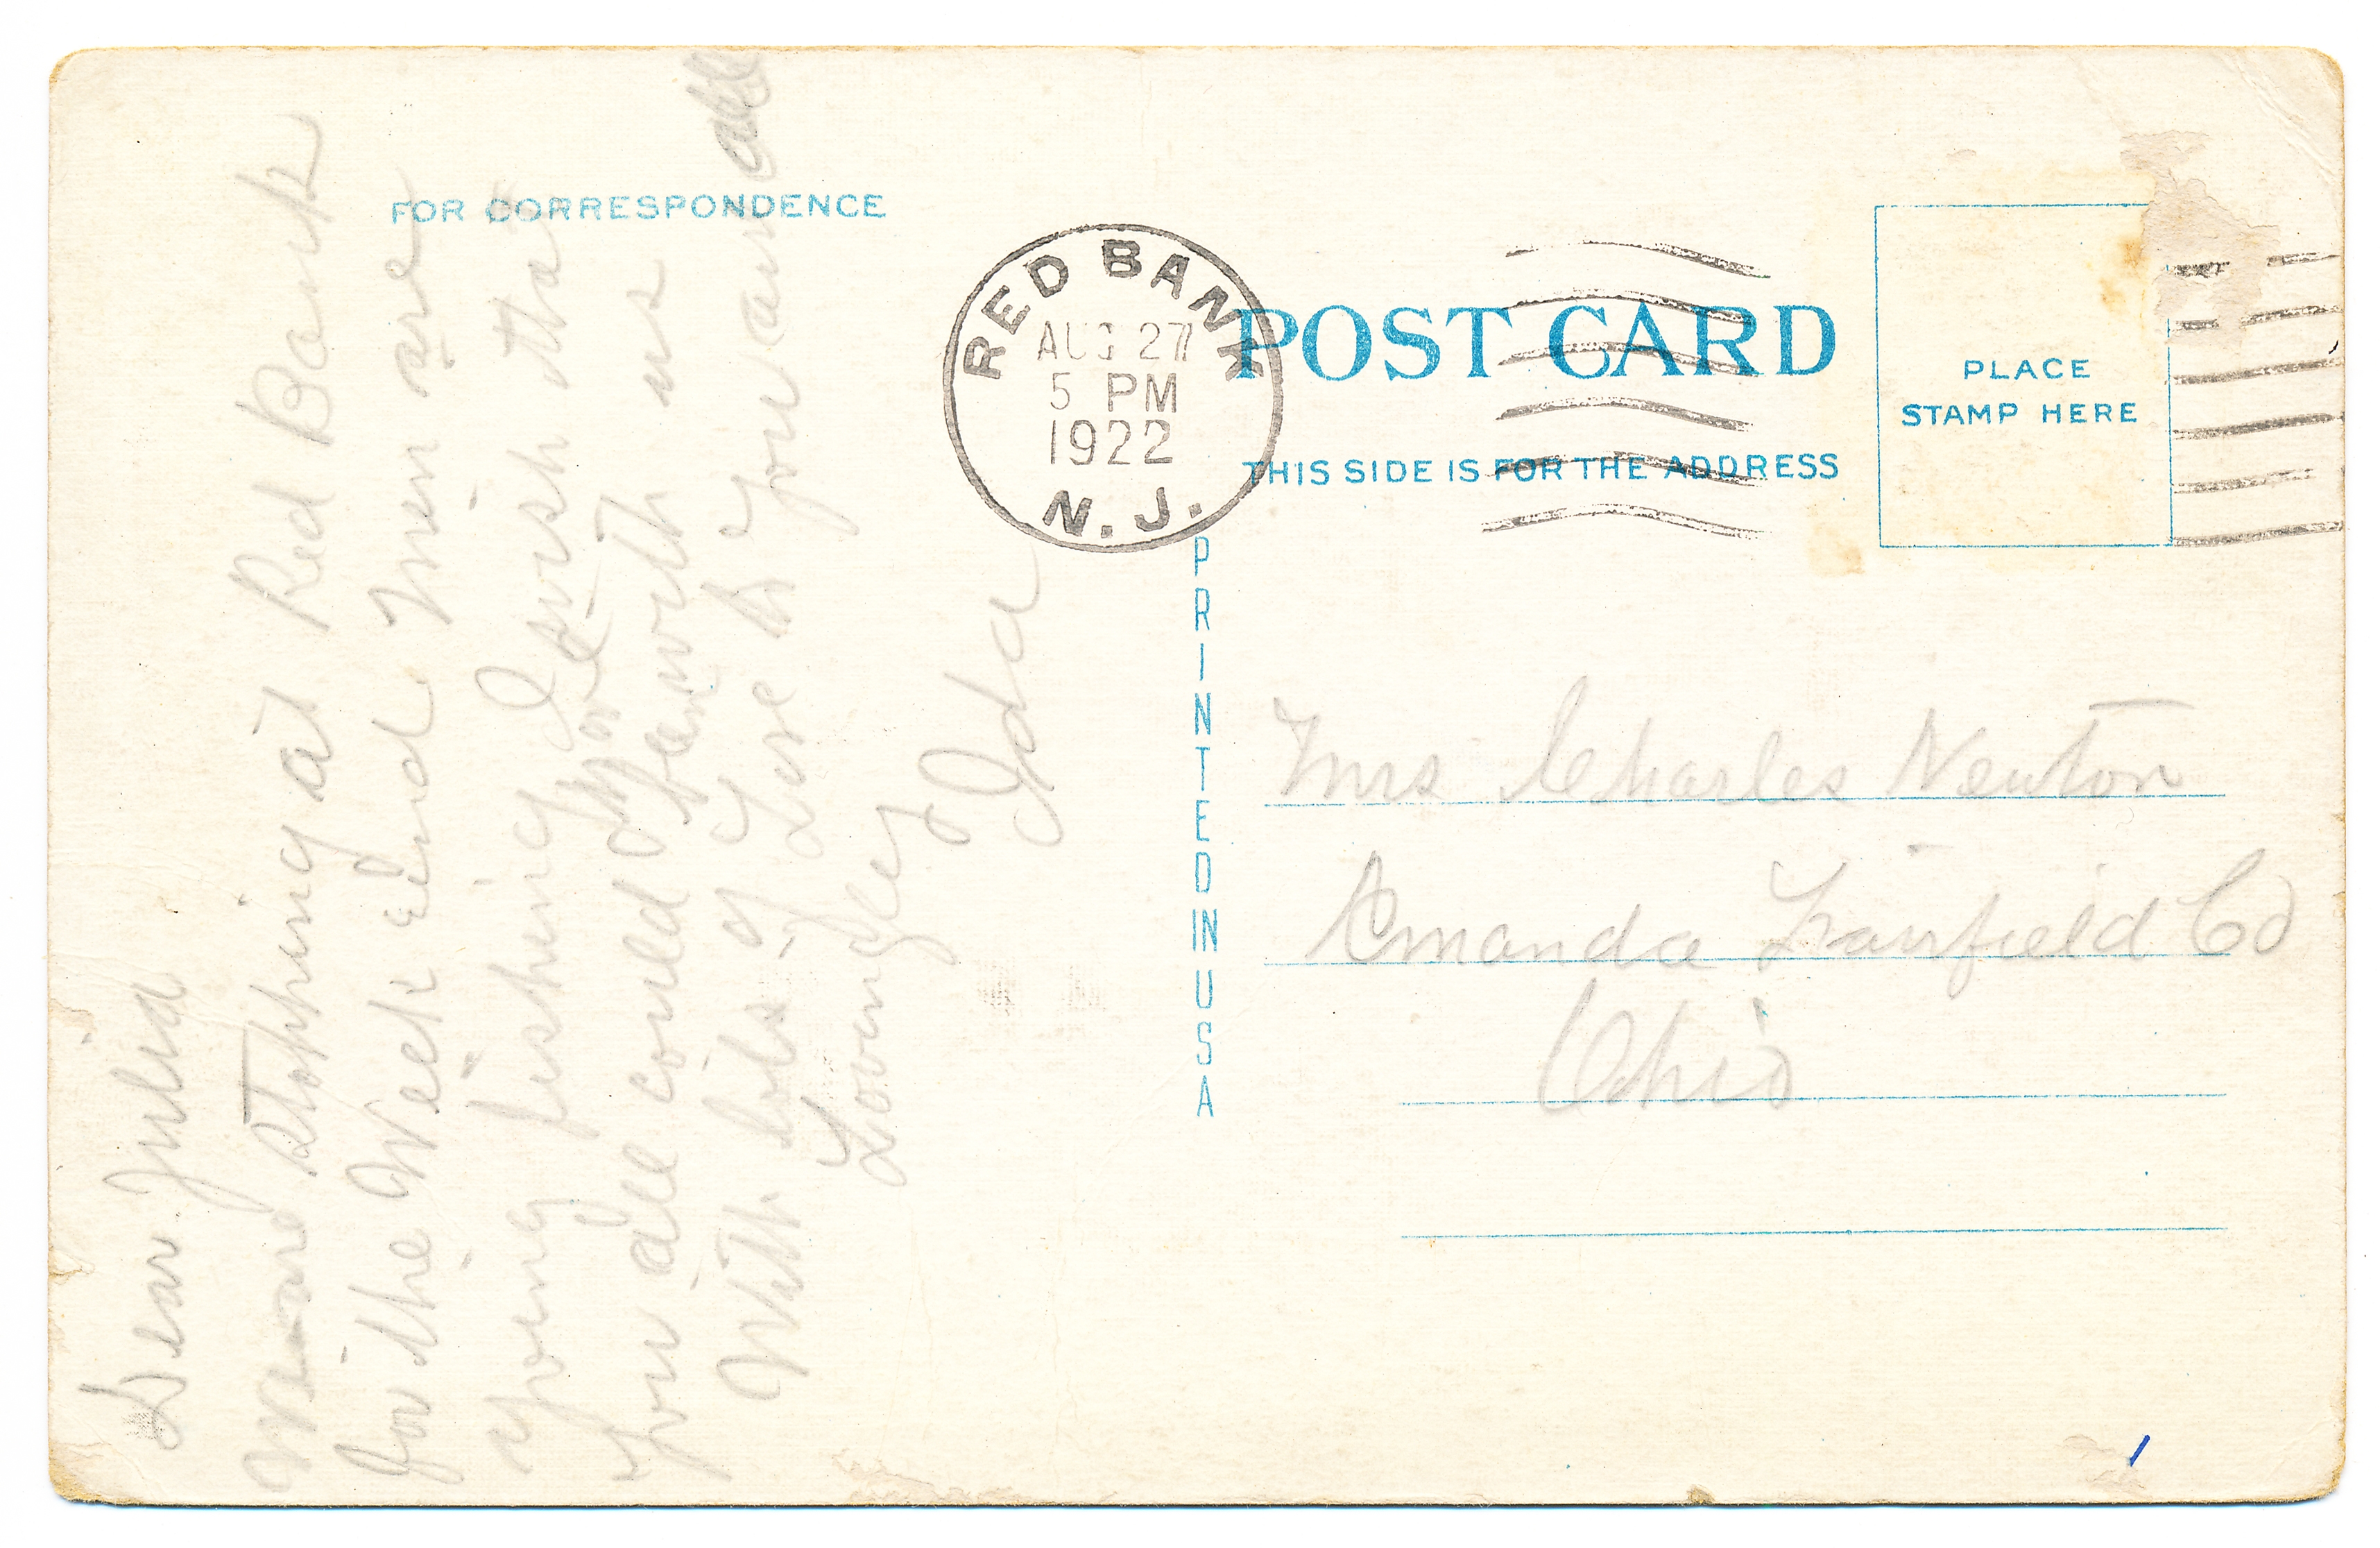 FOR CORRESPONDENCE
Dear Julia
We are stopping at Red Bank
for the Week End Men are
going fishing I wish that
you all could have been with us
With lots of Love to you and all
Lovingly
Ida
RED BANK
AUG 27
5 PM
1922
N. J.
POST CARD
THIS SIDE IS FOR THE ADDRESS
PLACE
STAMP HERE
PRINTED IN U S A
Mrs Charles Newton
Amanda Fairfield Co
Ohio